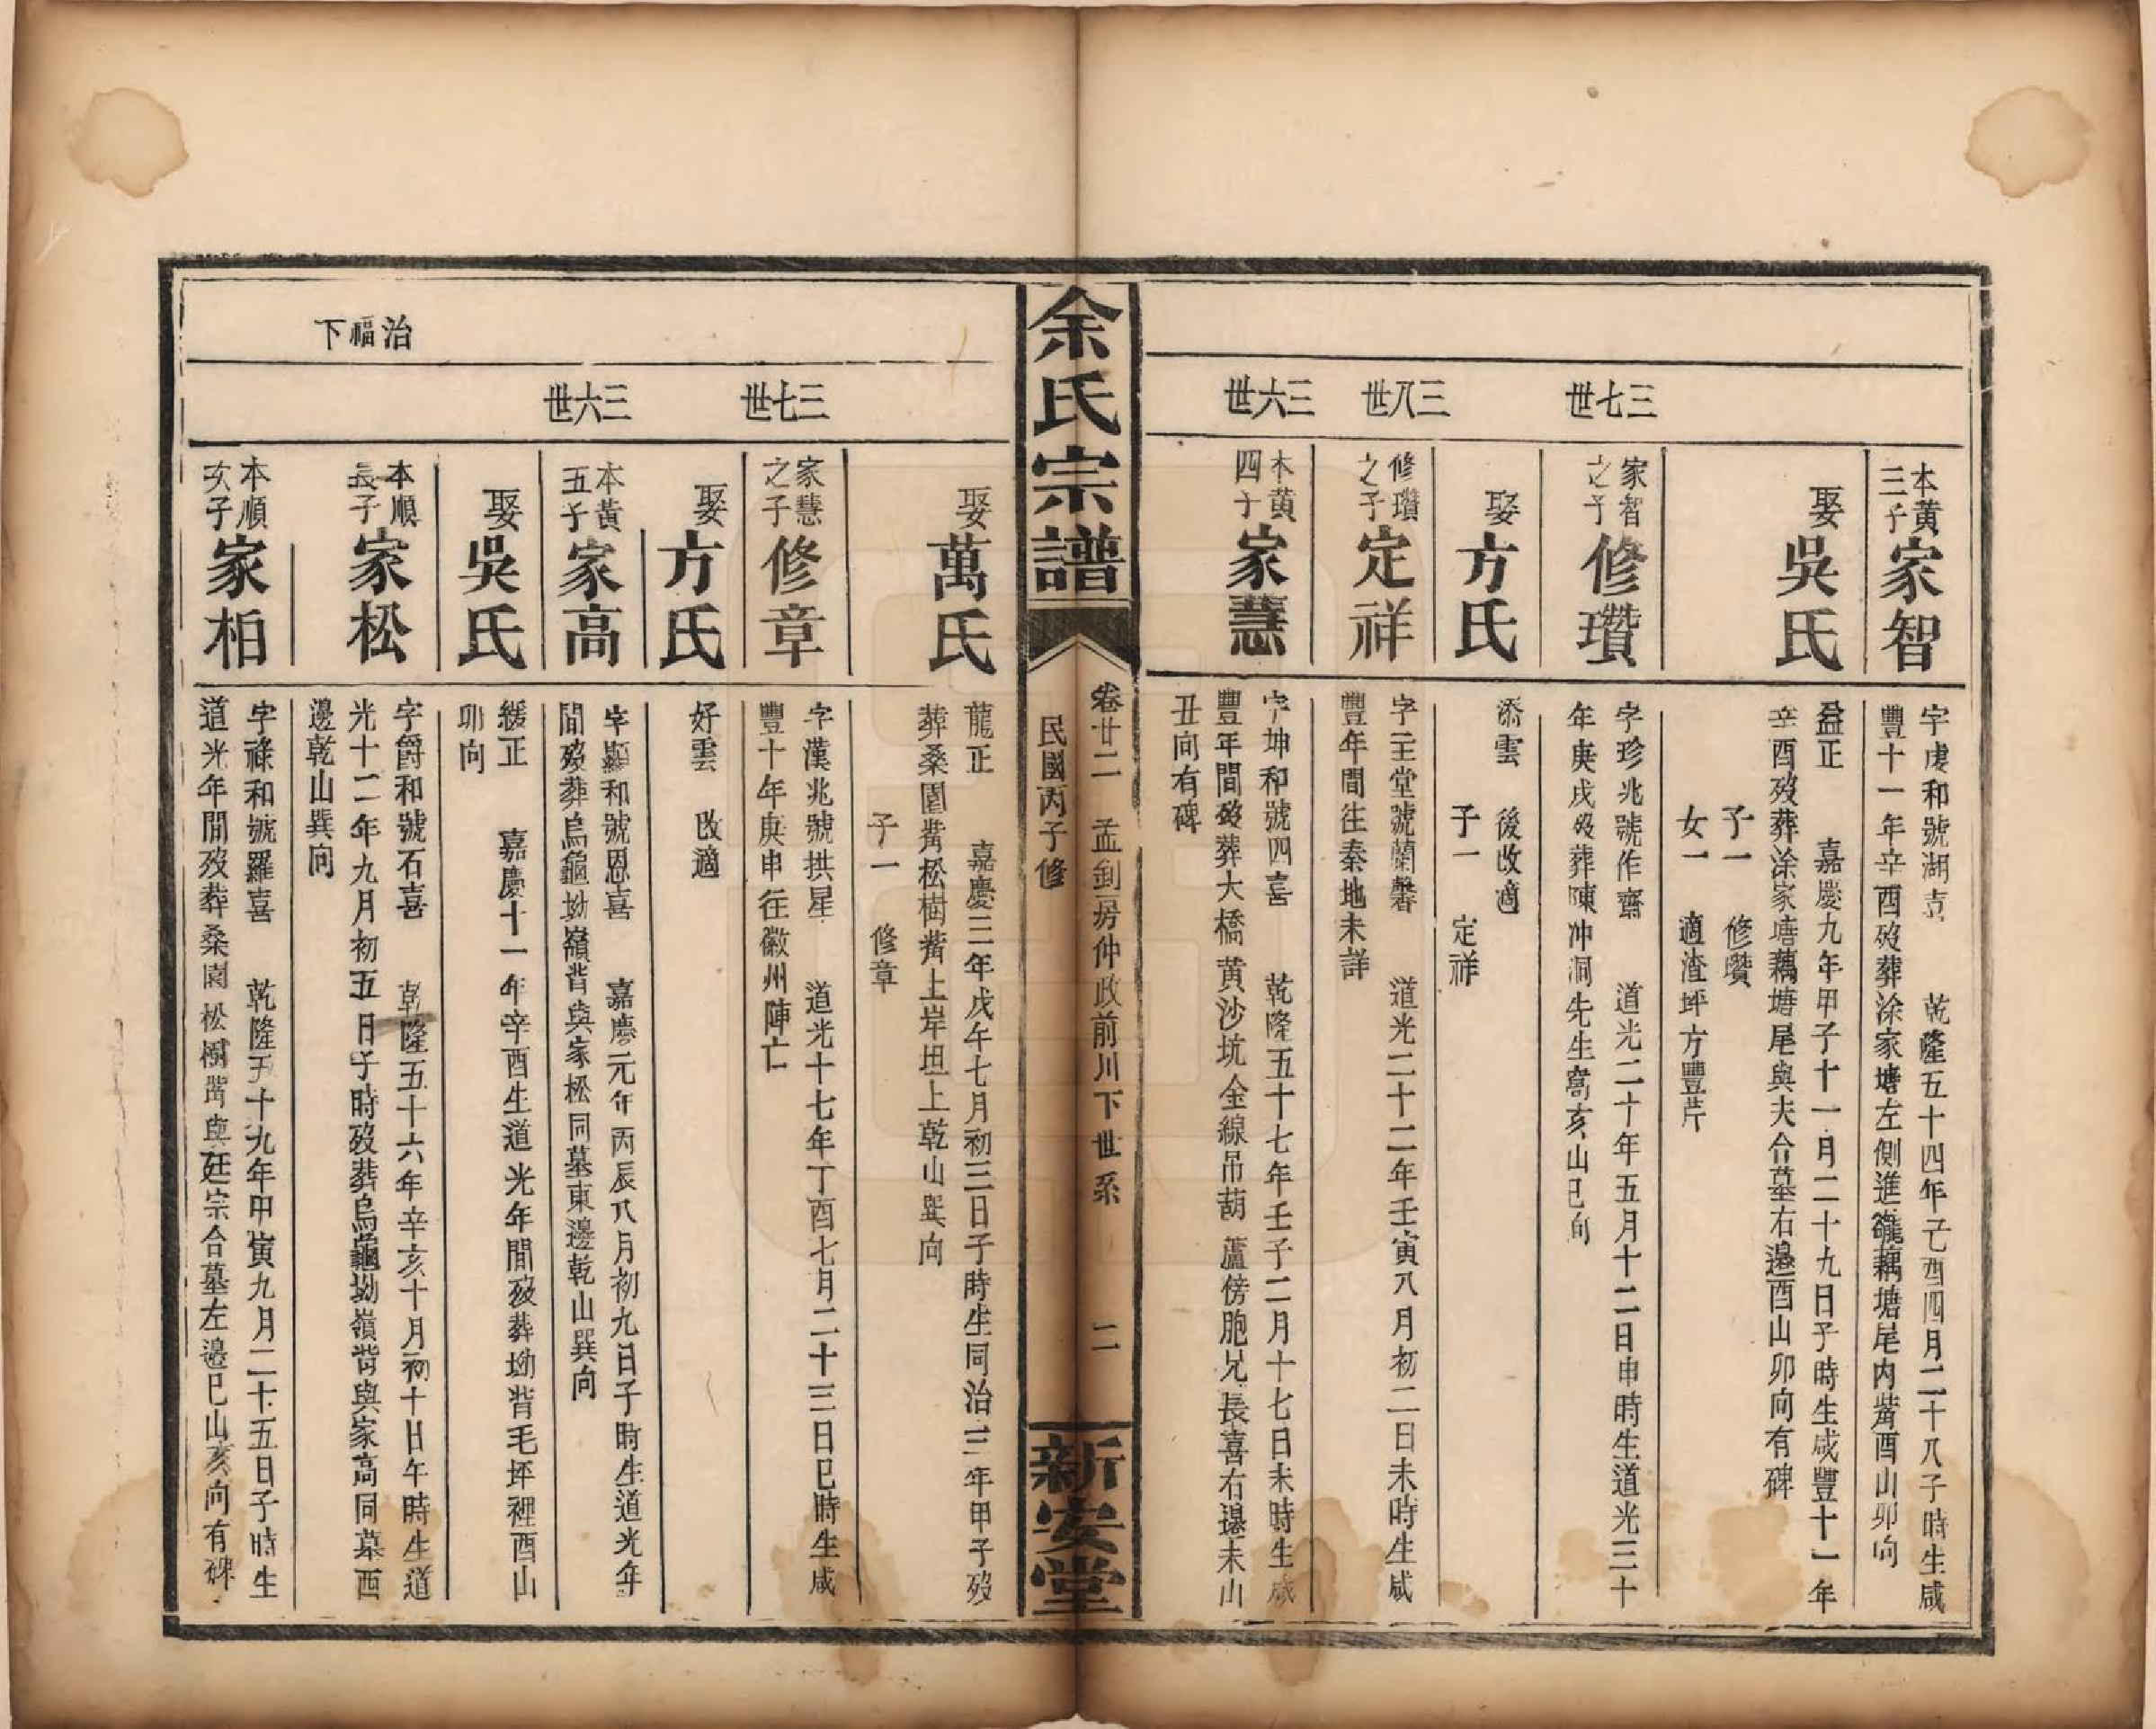 三七世
三八世
三六世
本黃三子
家智
字虔和號湖吉　乾隆五十四年乙酉四月二十八子時生咸
豐十一年辛酉歿葬涂家塘左側進礲藕塘尾内嘴酉山卯向
娶吳氏
益正　嘉慶九年甲子十一月二十九日子時生咸豐十一年
辛酉歿葬涂家塘藕塘尾與夫合墓右邊酉山卯向有碑
子一　修瓚
女一　適渣坪方豐芹
家智之子
修瓚
字珍兆號作齋　道光二十年五月十二日申時生道光三十
年庚戌歿葬陳冲洞先生窩亥山巳向
娶方氏
添雲　後改適
子一　定祥
修瓚之子
定祥
字玉堂號蘭馨　道光二十二年壬寅八月初二日未時生咸
豐年間往秦地未詳
本黃四子
家慧
字坤和號四喜　乾隆五十七年壬子二月十七日未時生咸
豐年間歿葬大橋黃沙坑金線吊葫蘆傍胞兄長喜右邊未山
丑向有碑
余氏宗譜
卷廿二　孟釗房仲政前川下世系　二
民國丙子修
新安堂
三七世
三六世
治福下
娶萬氏
龍正　嘉慶三年戊午七月初三日子時生同治三年甲子歿
葬桑園嘴松樹嘴上岸坦上乾山巽向
子一　修章
家慧之子
修章
字漢兆號拱星　道光十七年丁酉七月二十三日巳時生咸
豐十年庚申往徽州陣亡
娶方氏
好雲　改適
本黃五子
家高
字顯和號恩喜　嘉慶元年丙辰八月初九日子時生道光年
間歿葬烏龜坳嶺背與家松同墓東邊乾山巽向
娶吳氏
緩正　嘉慶十一年辛酉生道光年間歿葬坳背毛坪裡酉山
卯向
本順長子
家松
字爵和號石喜　乾隆五十六年辛亥十月初十日午時生道
光十二年九月初五日子時歿葬烏龜坳嶺背與家高同墓西
邊乾山巽向
本順次子
家柏
字祿和號羅喜　乾隆五十九年甲寅九月二十五日子時生
道光年間歿葬桑園松樹嘴與廷宗合墓左邊巳山亥向有碑